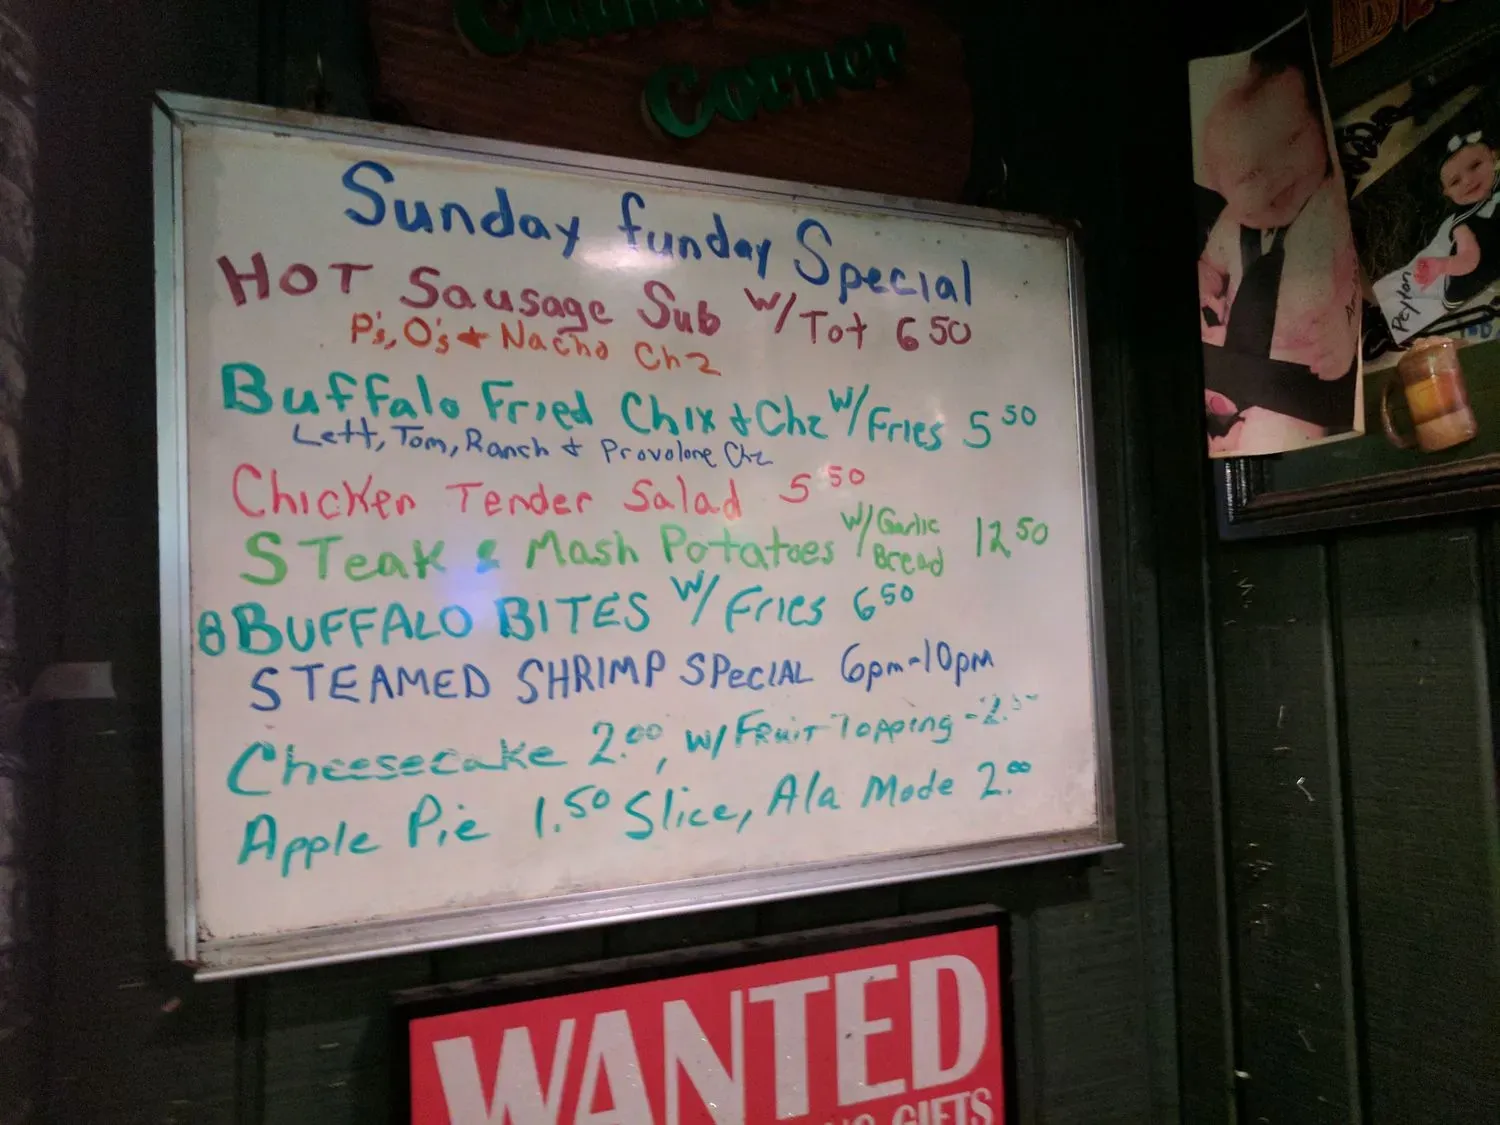 Corner
Sunday funday Special
HOT Sausage Sub W/Tot 6 50
P's, O's + Nacho Chz
Buffalo Fried Chix + Chz W/Fries 5 50
Lett, Tom, Ranch + Provolone Chz
Chicken Tender Salad 5 50
STeak & Mash Potatoes W/Garlic Bread 12 50
8 BUFFALO BITES W/ Fries 6 50
STEAMED SHRIMP SPECIAL 6pm-10pm
Cheesecake 2.00, w/ Fruit Topping
Apple Pie 1.50 Slice, Ala Mode 2.00
WANTED
GIFTS
Peyton